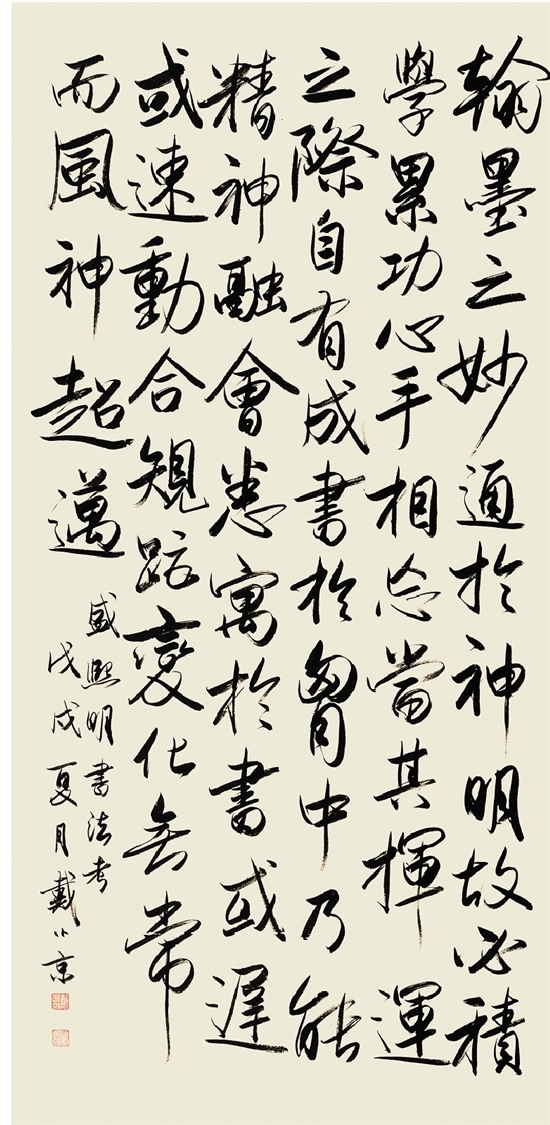 翰墨之妙通於神明故必積
學累功心手相忘當其揮運
之際自有成書於胷中乃能
精神融會悉寓於書或遲
或速動合規距變化無常
而風神超邁
盛熙明書法考
戊戌夏月戴小京